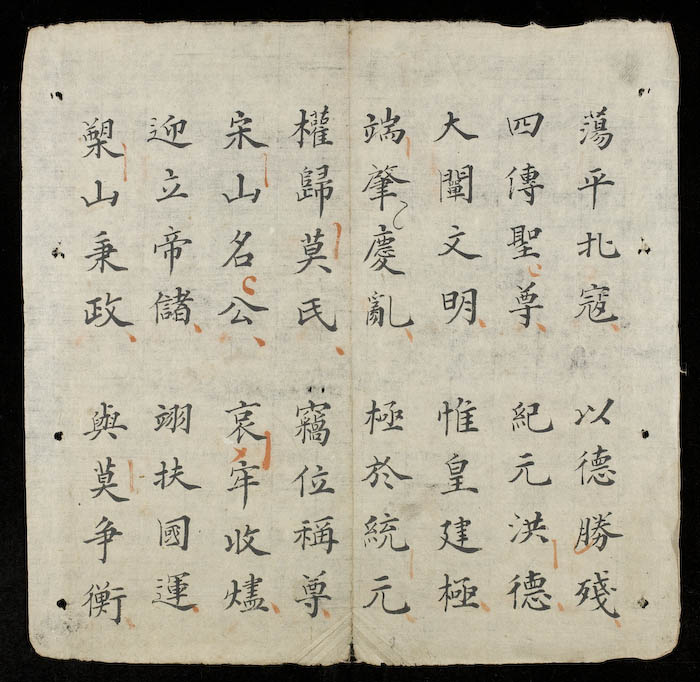 蕩平北寇 以德勝殘
四傳聖尊 紀元洪德
大闡文明 惟皇建極
端肇慶亂 極於統元
權歸莫氏 竊位稱尊
宋山名公 哀牢收燼
迎立帝儲 翊扶國運
槊山秉政 與莫争衡